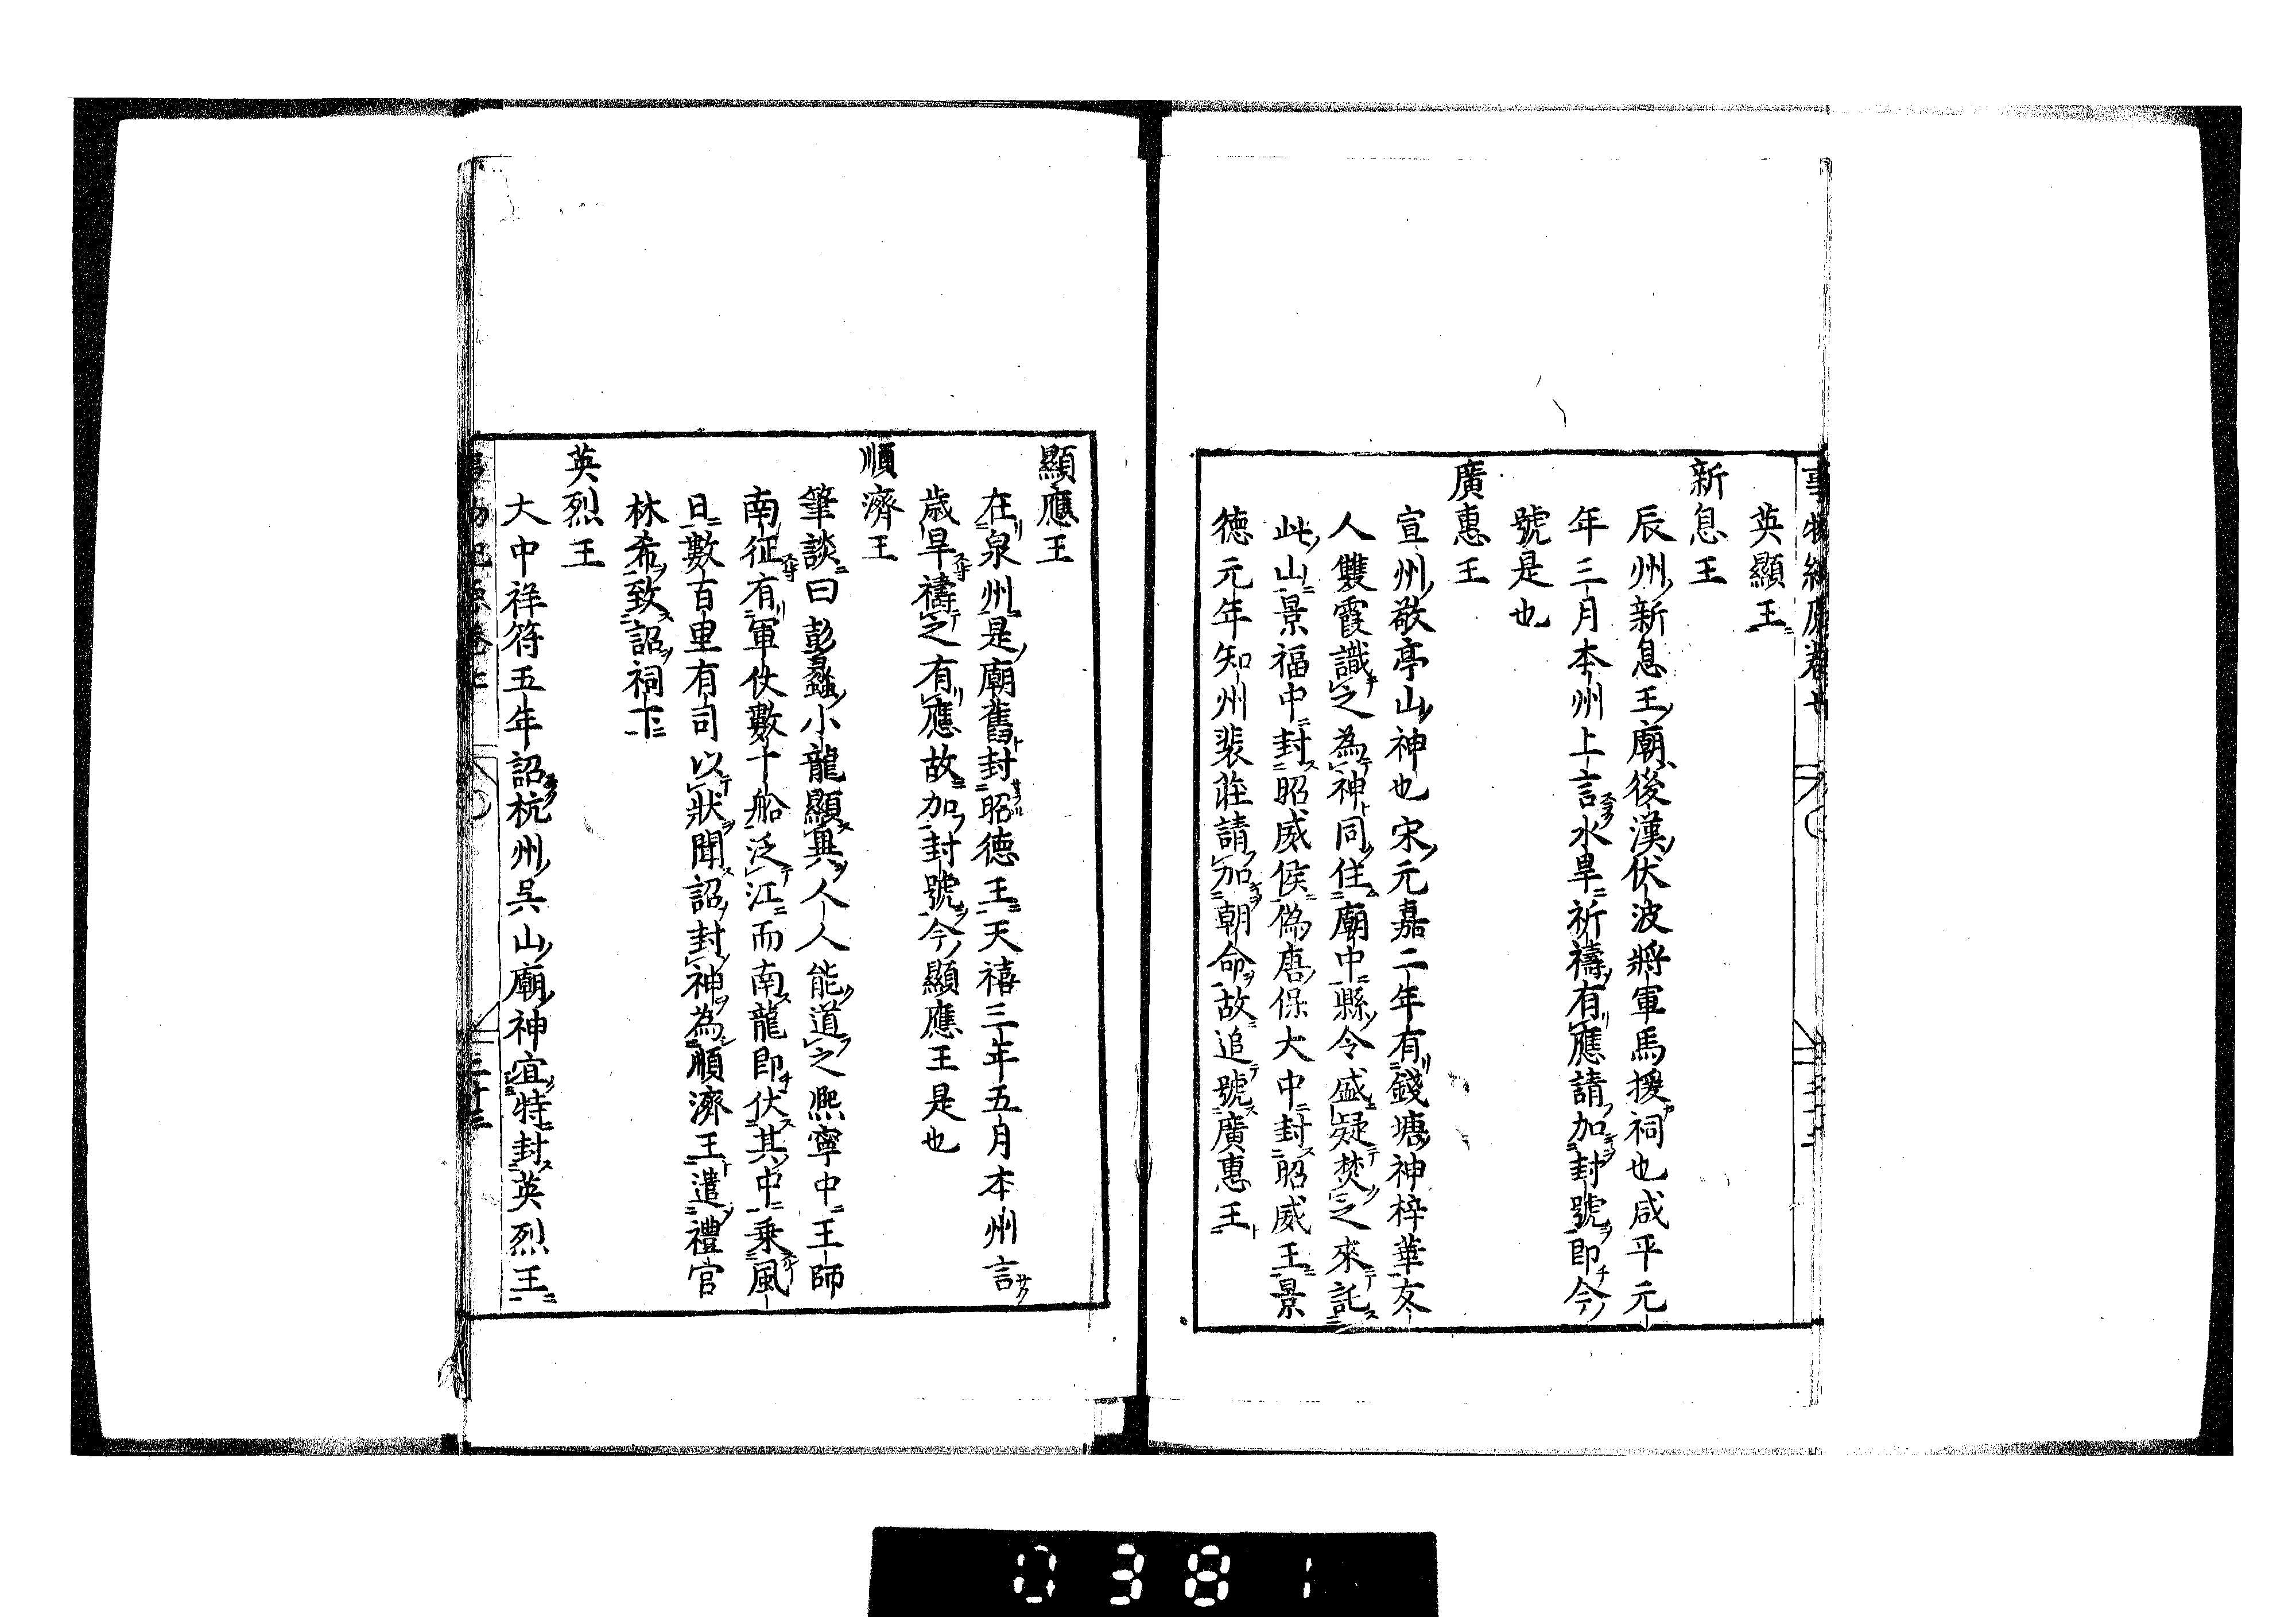 英顯王
新息王
辰州新息王廟後漢伏波將軍馬援祠也咸平元
年三月本州上言水旱祈禱有應請加封號即今
號是也
廣惠王
宣州敬亭山神也宋元嘉二年有錢塘神梓華友
人雙霞識之為神同住廟中縣令盛疑焚之來託
此山景福中封昭威侯偽唐保大中封昭威王景
德元年知州裴莊請加朝命故追號廣惠王
顯應王
在泉州是廟舊封昭德王天禧三年五月本州言
歳旱禱之有應故加封號今顯應王是也
順濟王
筆談曰彭蠡小龍顯異人人能道之熈寧中王師
南征有軍仗數十船泛江而南龍即伏其中乗風
日數百里有司以狀聞詔封神為順濟王遣禮官
林希致詔祠下
英烈王
大中祥符五年詔杭州呉山廟神宜特封英烈王
0381